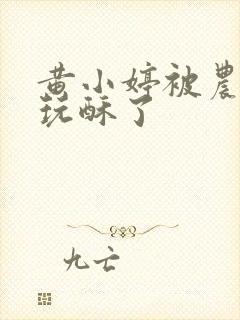 黄小婷被農
玩酥了
九亡